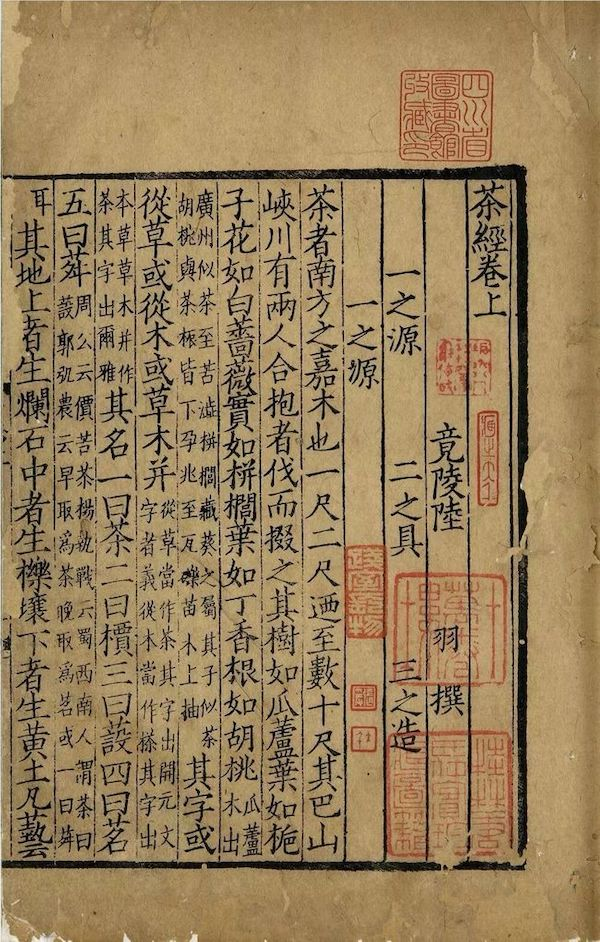 四川省
圖書館
收藏印
茶經卷上
竟陵陸 羽 撰
一之源 二之具 三之造
一之源
茶者南方之嘉木也一尺二尺迺至數十尺其巴山
峽川有兩人合抱者伐而掇之其樹如瓜蘆葉如梔
子花如白薔薇實如栟櫚葉如丁香根如胡桃 瓜蘆木出
廣州似茶至苦澁栟櫚藏葵之屬其子似茶
胡桃與茶根皆下孕兆至瓦礫苗木上抽 其字或
從草或從木或草木并 從草當作茶其字出開元文
字者義從木當作搽其字出
本草草木并作
茶其字出爾雅 其名一曰茶二曰檟三曰設四曰茗
五曰荈 周公云價苦茶楊執戟云蜀西南人謂茶曰
蔎郭弘農云早取爲茶晚取爲茗或一曰荈
耳 其地上者生爛石中者生櫟壤下者生黃土凡藝